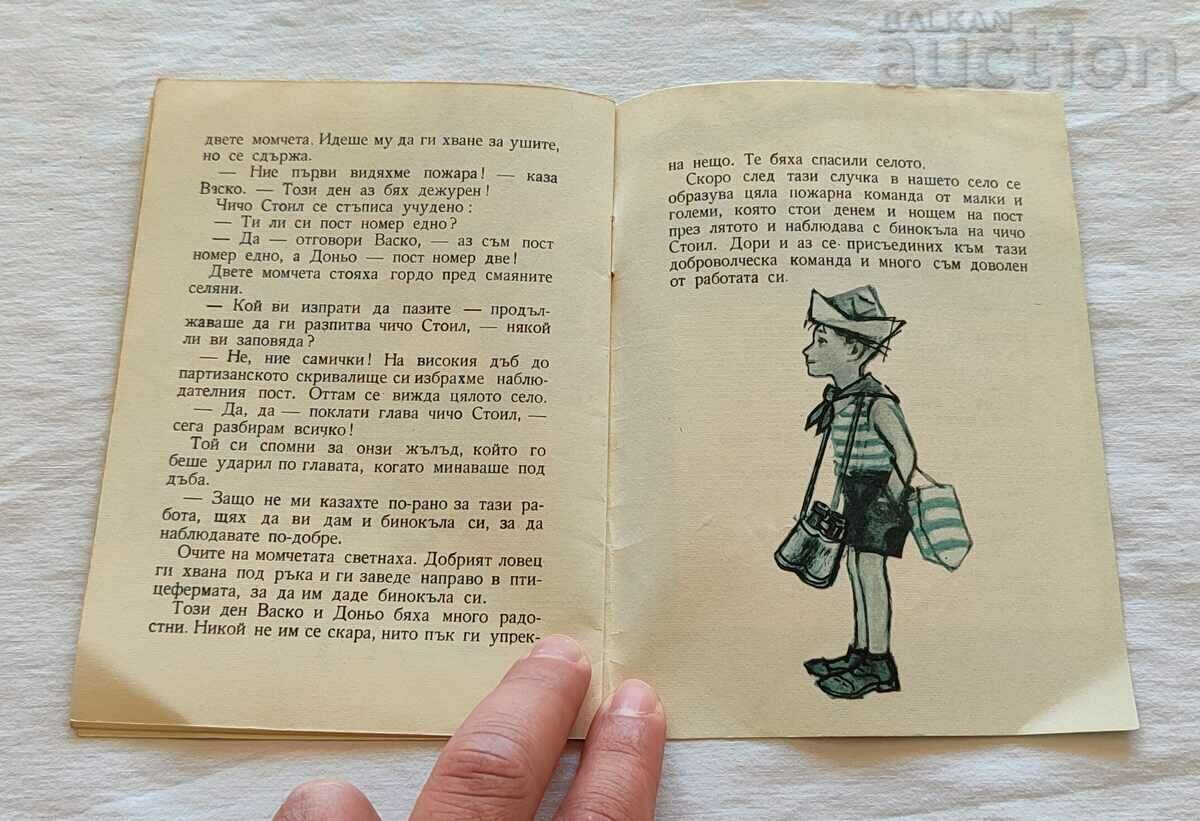 BALKAN
auction
двете момчета. Идеше му да ги хване за ушите,
но се сдържа.
— Ние първи видяхме пожара! — каза
Васко. — Този ден аз бях дежурен!
Чичо Стоил се стъписа учудено:
— Ти ли си пост номер едно?
— Да — отговори Васко, — аз съм пост
номер едно, а Доньо — пост номер две!
Двете момчета стояха гордо пред смаяните
селяни.
— Кой ви изпрати да пазите — продъл-
жаваше да ги разпитва чичо Стоил, — някой
ли ви заповяда?
— Не, ние самички! На високия дъб до
партизанското скривалище си избрахме наблю-
дателния пост. Оттам се вижда цялото село.
— Да, да — поклати глава чичо Стоил, —
сега разбирам всичко!
Той си спомни за онзи жълъд, който го
беше ударил по главата, когато минаваше под
дъба.
— Защо не ми казахте по-рано за тази ра-
бота, щях да ви дам и бинокъла си, за да
наблюдавате по-добре.
Очите на момчетата светнаха. Добрият ловец
ги хвана под ръка и ги заведе направо в пти-
цефермата, за да им даде бинокъла си.
Този ден Васко и Доньо бяха много радо-
стни. Никой не им се скара, нито пък ги упрек-
на нещо. Те бяха спасили селото.
Скоро след тази случка в нашето село се
образува цяла пожарна команда от малки и
големи, която стои денем и нощем на пост
през лятото и наблюдава с бинокъла на чичо
Стоил. Дори и аз се присъединих към тази
доброволческа команда и много съм доволен
от работата си.